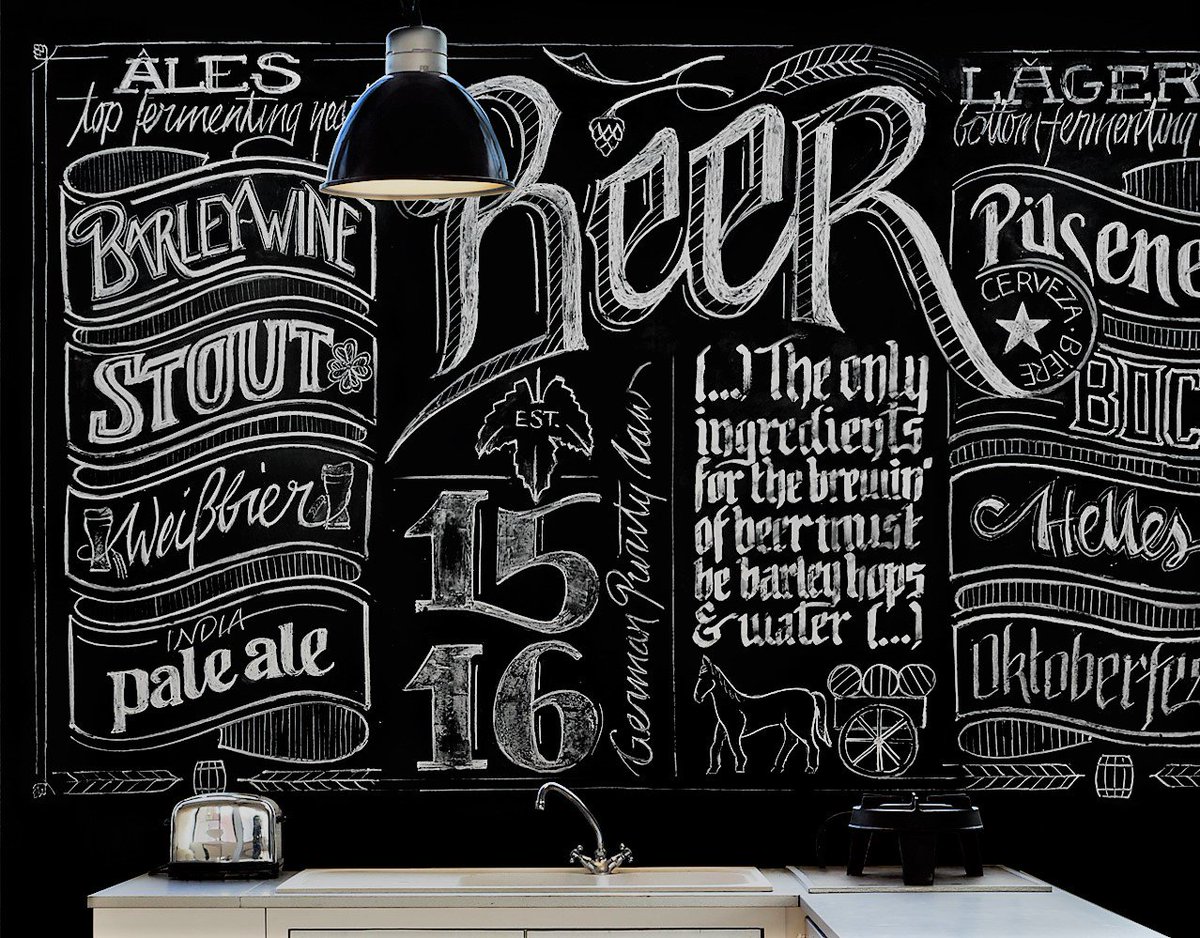 ÂLES
top fermenting
BARLEY-WINE
STOUT
Weißbier
INDIA
pale ale
BEER
EST.
15
16
German Purity Law
(...) The only
ingredients
for the brewin'
of beer must
be barley hops
& water (...)
LÄGER
bottom fermenting
Pilsene
CERVEZA · BIERE
BOC
Helles
Oktoberfes